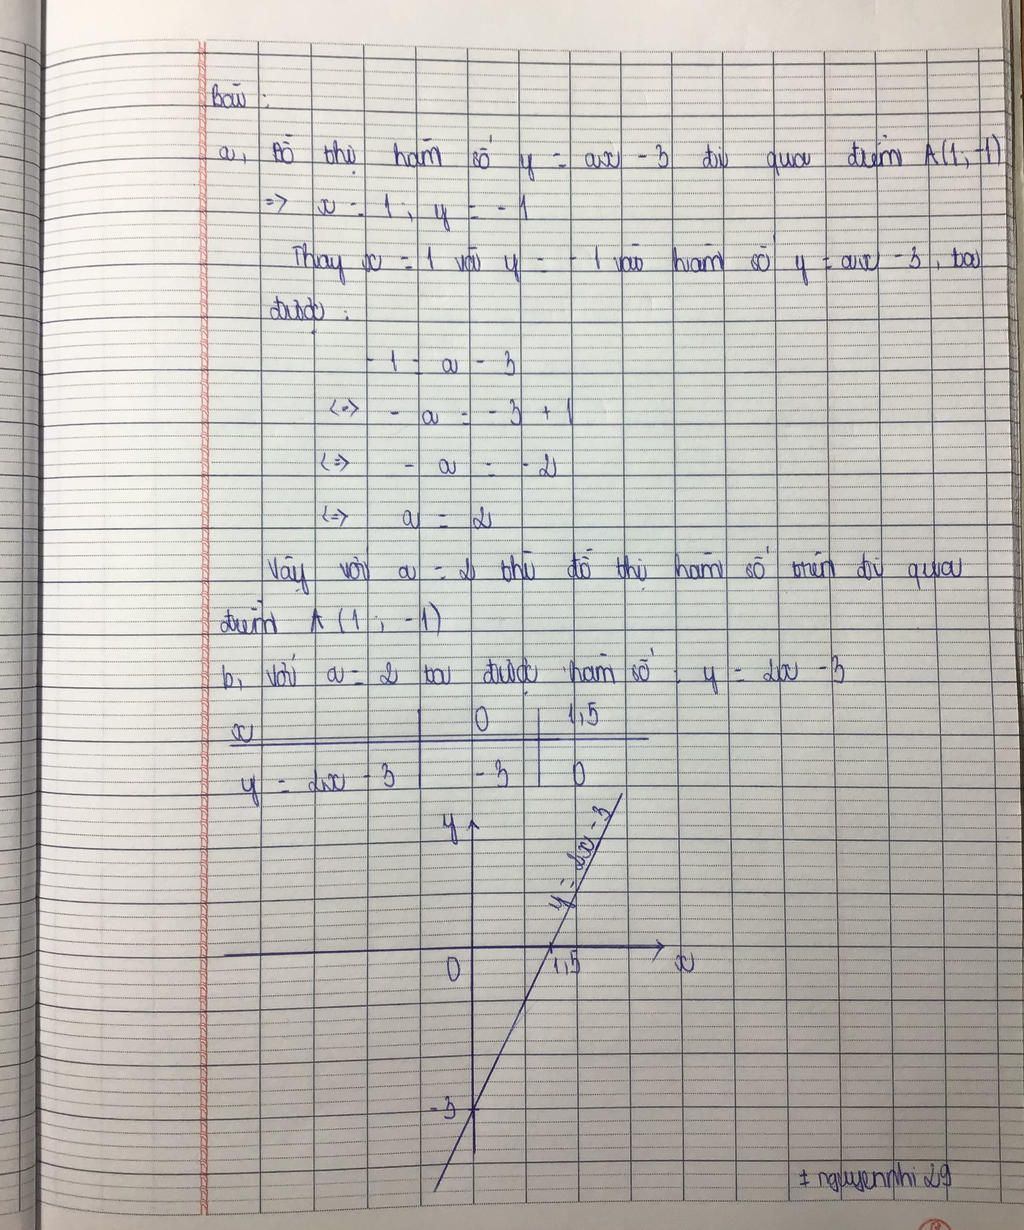 Bài :
a, Đồ thị hàm số y = ax - 3 đi qua điểm A(1; -1)
=> x = 1 ; y = -1
Thay x = 1 và y = -1 vào hàm số y = ax - 3, ta
được :
-1 = a - 3
<=> -a = -3 + 1
<=> -a = -2
<=> a = 2
Vậy với a = 2 thì đồ thị hàm số trên đi qua
điểm A(1 ; -1)
b, Với a = 2 ta được hàm số : y = 2x - 3
x 0 1,5
y = 2x - 3 -3 0
y
y = 2x - 3
0 1,5 x
-3
± nguyennhi 29